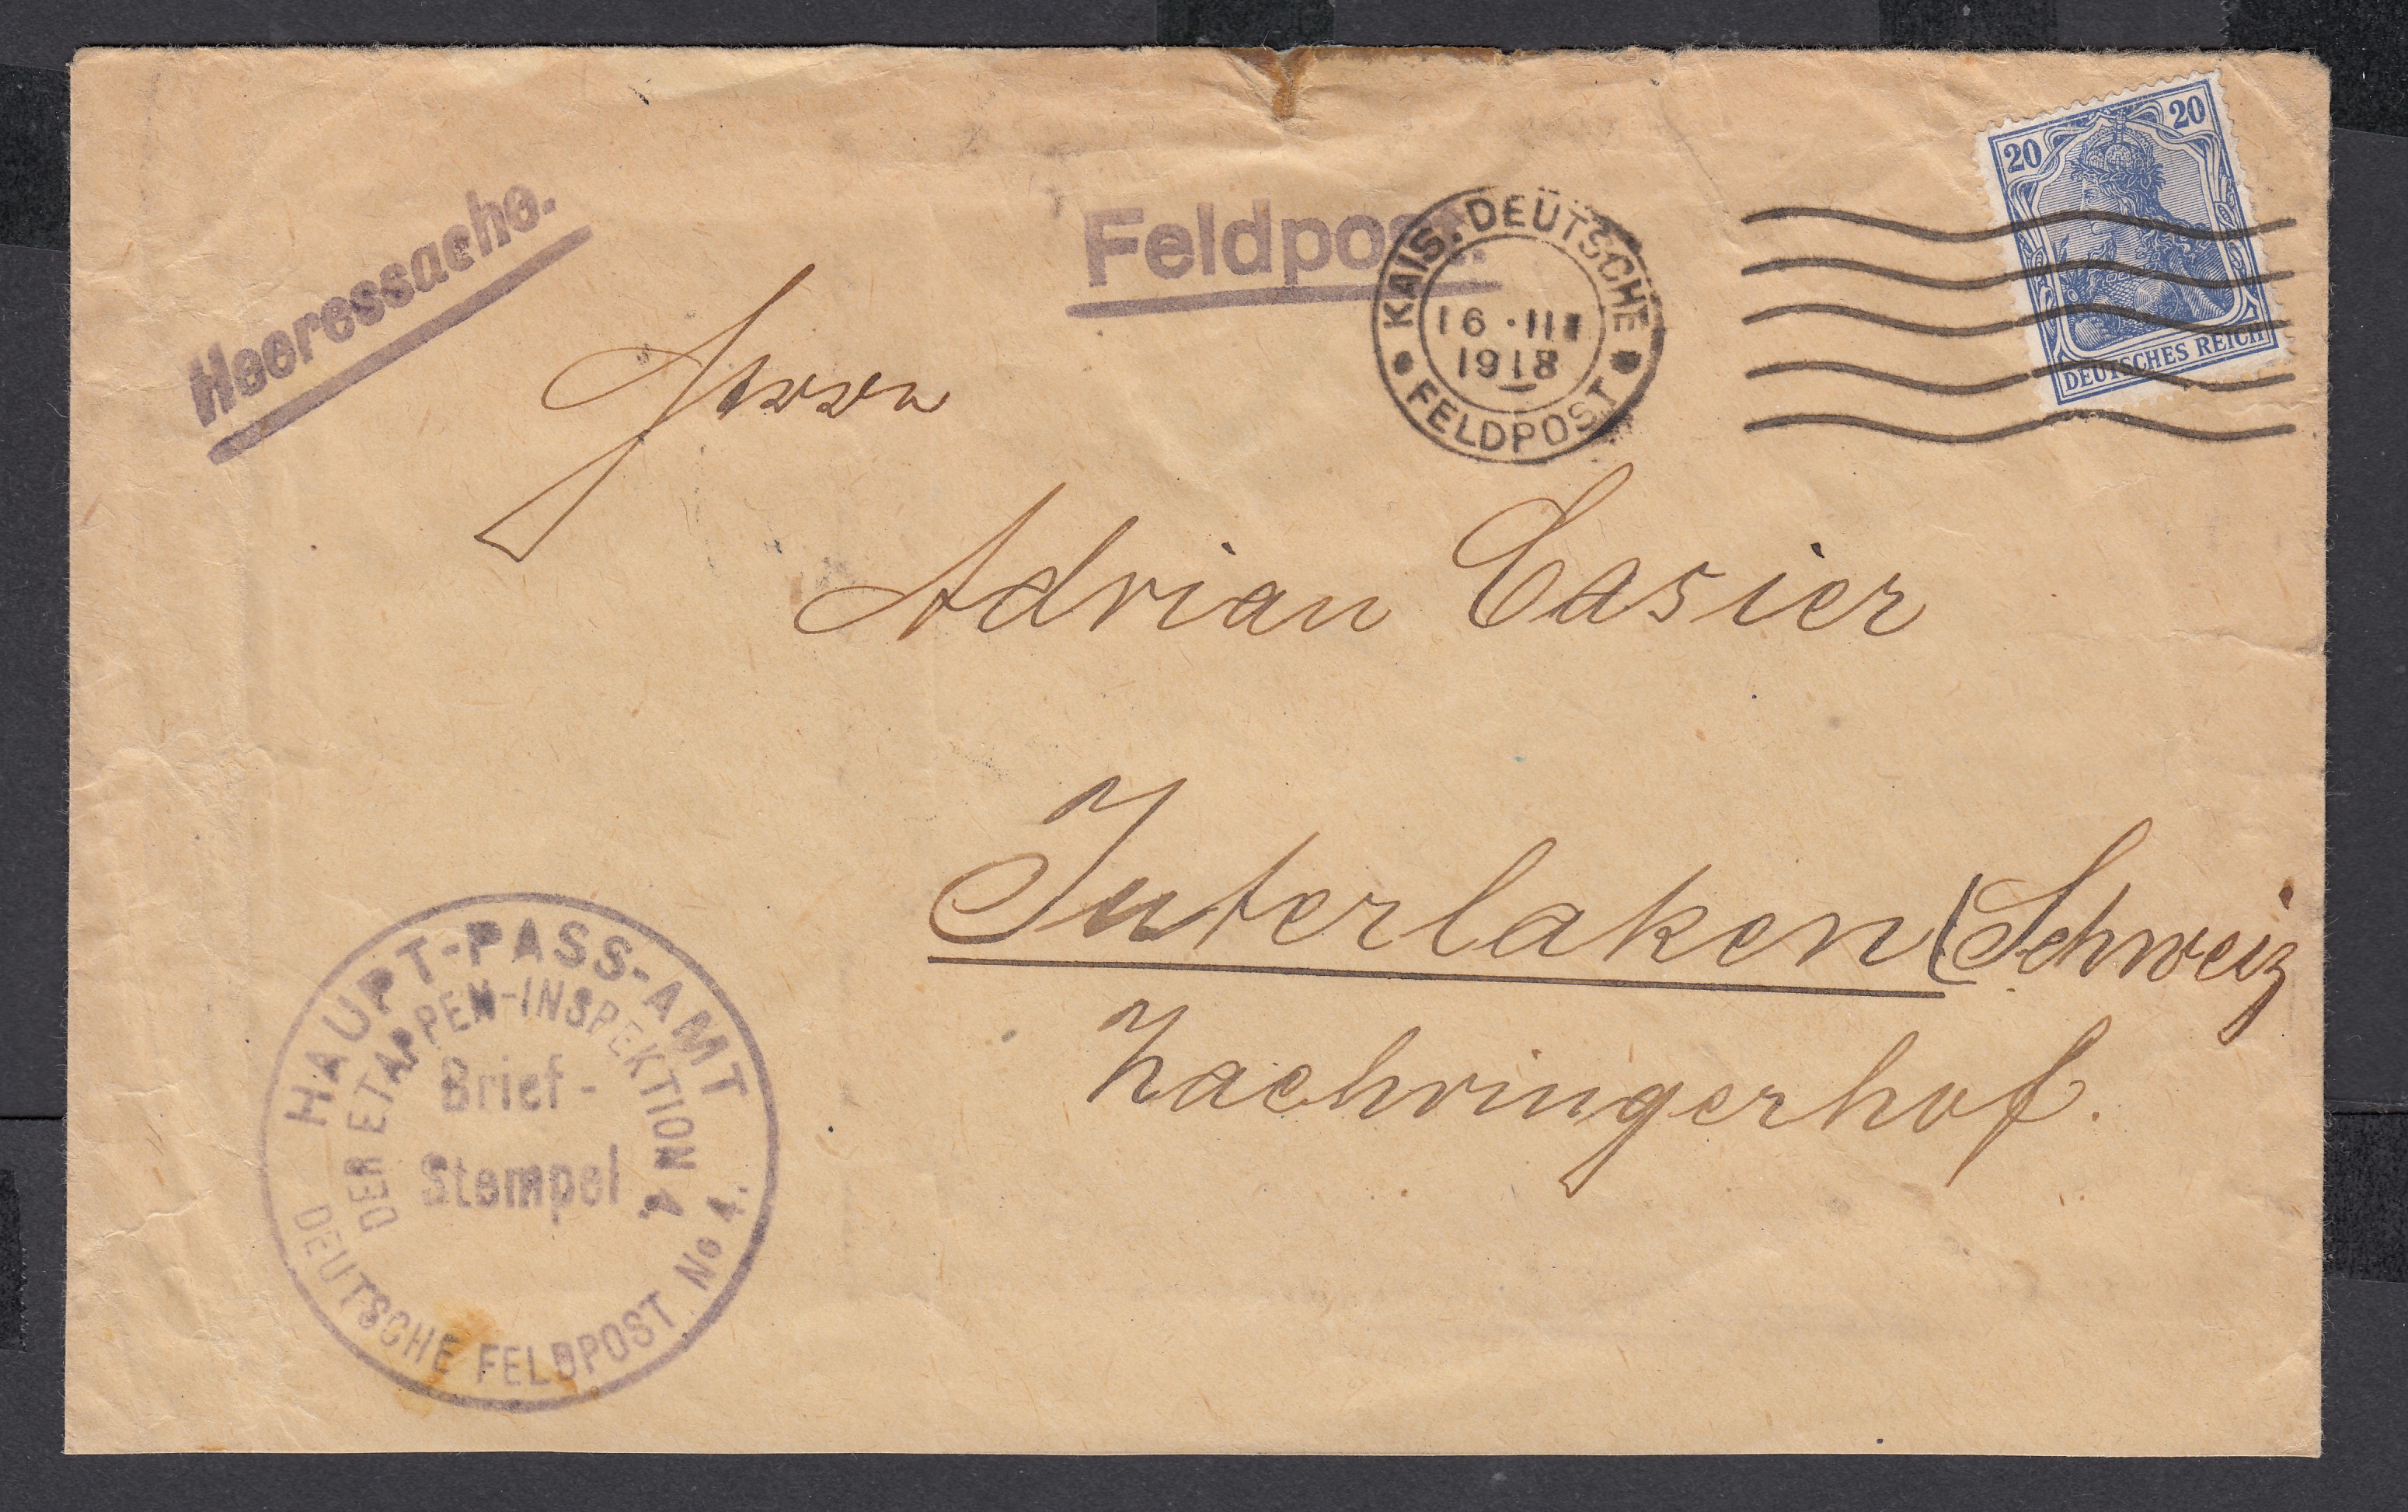 Heeressache.
Feldpost.
KAIS. DEUTSCHE
16 · III
1918
FELDPOST
20 20
DEUTSCHES REICH
Herrn
Adrian Casier
Interlaken (Schweiz
Zaehringerhof.
HAUPT-PASS-AMT
DER ETAPPEN-INSPEKTION 4.
Brief-
Stempel
DEUTSCHE FELDPOST No 4.